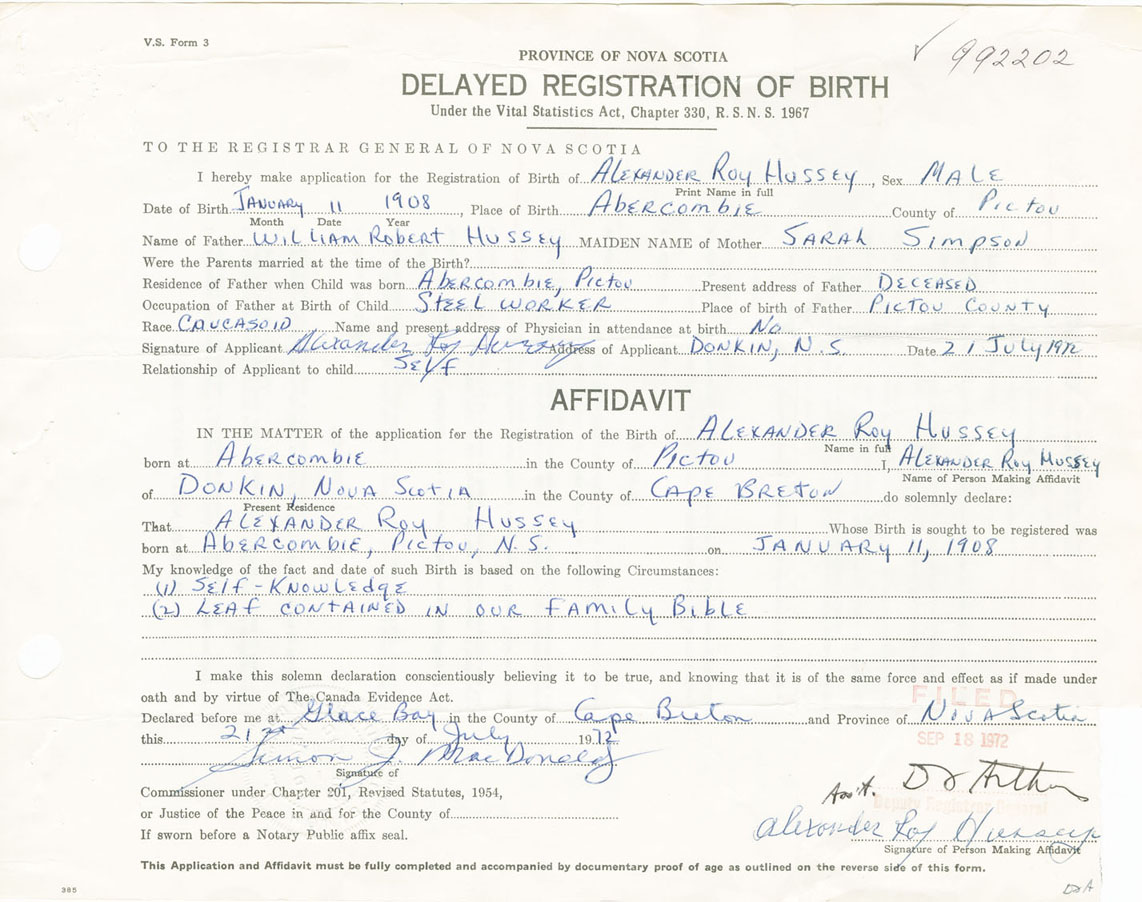 V.S. Form 3
✓ 992202
PROVINCE OF NOVA SCOTIA
DELAYED REGISTRATION OF BIRTH
Under the Vital Statistics Act, Chapter 330, R. S. N. S. 1967
TO THE REGISTRAR GENERAL OF NOVA SCOTIA
I hereby make application for the Registration of Birth of ALEXANDER ROY HUSSEY, Sex MALE
Print Name in full
Date of Birth JANUARY 11 1908, Place of Birth ABERCOMBIE County of PICTOU
Month Date Year
Name of Father WILLIAM ROBERT HUSSEY MAIDEN NAME of Mother SARAH SIMPSON
Were the Parents married at the time of the Birth?
Residence of Father when Child was born ABERCOMBIE, PICTOU Present address of Father DECEASED
Occupation of Father at Birth of Child STEEL WORKER Place of birth of Father PICTOU COUNTY
Race CAUCASOID Name and present address of Physician in attendance at birth No
Signature of Applicant Alexander Roy Hussey Address of Applicant DONKIN, N.S. Date 21 July 1972
Relationship of Applicant to child SELF
AFFIDAVIT
IN THE MATTER of the application for the Registration of the Birth of ALEXANDER ROY HUSSEY
Name in full
born at ABERCOMBIE in the County of PICTOU I, ALEXANDER ROY HUSSEY
Name of Person Making Affidavit
of DONKIN, NOVA SCOTIA in the County of CAPE BRETON do solemnly declare:
Present Residence
That ALEXANDER ROY HUSSEY Whose Birth is sought to be registered was
born at ABERCOMBIE, PICTOU, N.S. on JANUARY 11, 1908
My knowledge of the fact and date of such Birth is based on the following Circumstances:
(1) SELF-KNOWLEDGE
(2) LEAF CONTAINED IN OUR FAMILY BIBLE
I make this solemn declaration conscientiously believing it to be true, and knowing that it is of the same force and effect as if made under
oath and by virtue of The Canada Evidence Act.
FILED
Declared before me at Glace Bay in the County of Cape Breton and Province of NOVA Scotia
this 21st day of July 1972.
SEP 18 1972
Simon J. MacDonald
Signature of
Commissioner under Chapter 201, Revised Statutes, 1954,
Ass't.
Deputy Registrar General
or Justice of the Peace in and for the County of
Alexander Roy Hussey
If sworn before a Notary Public affix seal.
Signature of Person Making Affidavit
This Application and Affidavit must be fully completed and accompanied by documentary proof of age as outlined on the reverse side of this form.
385